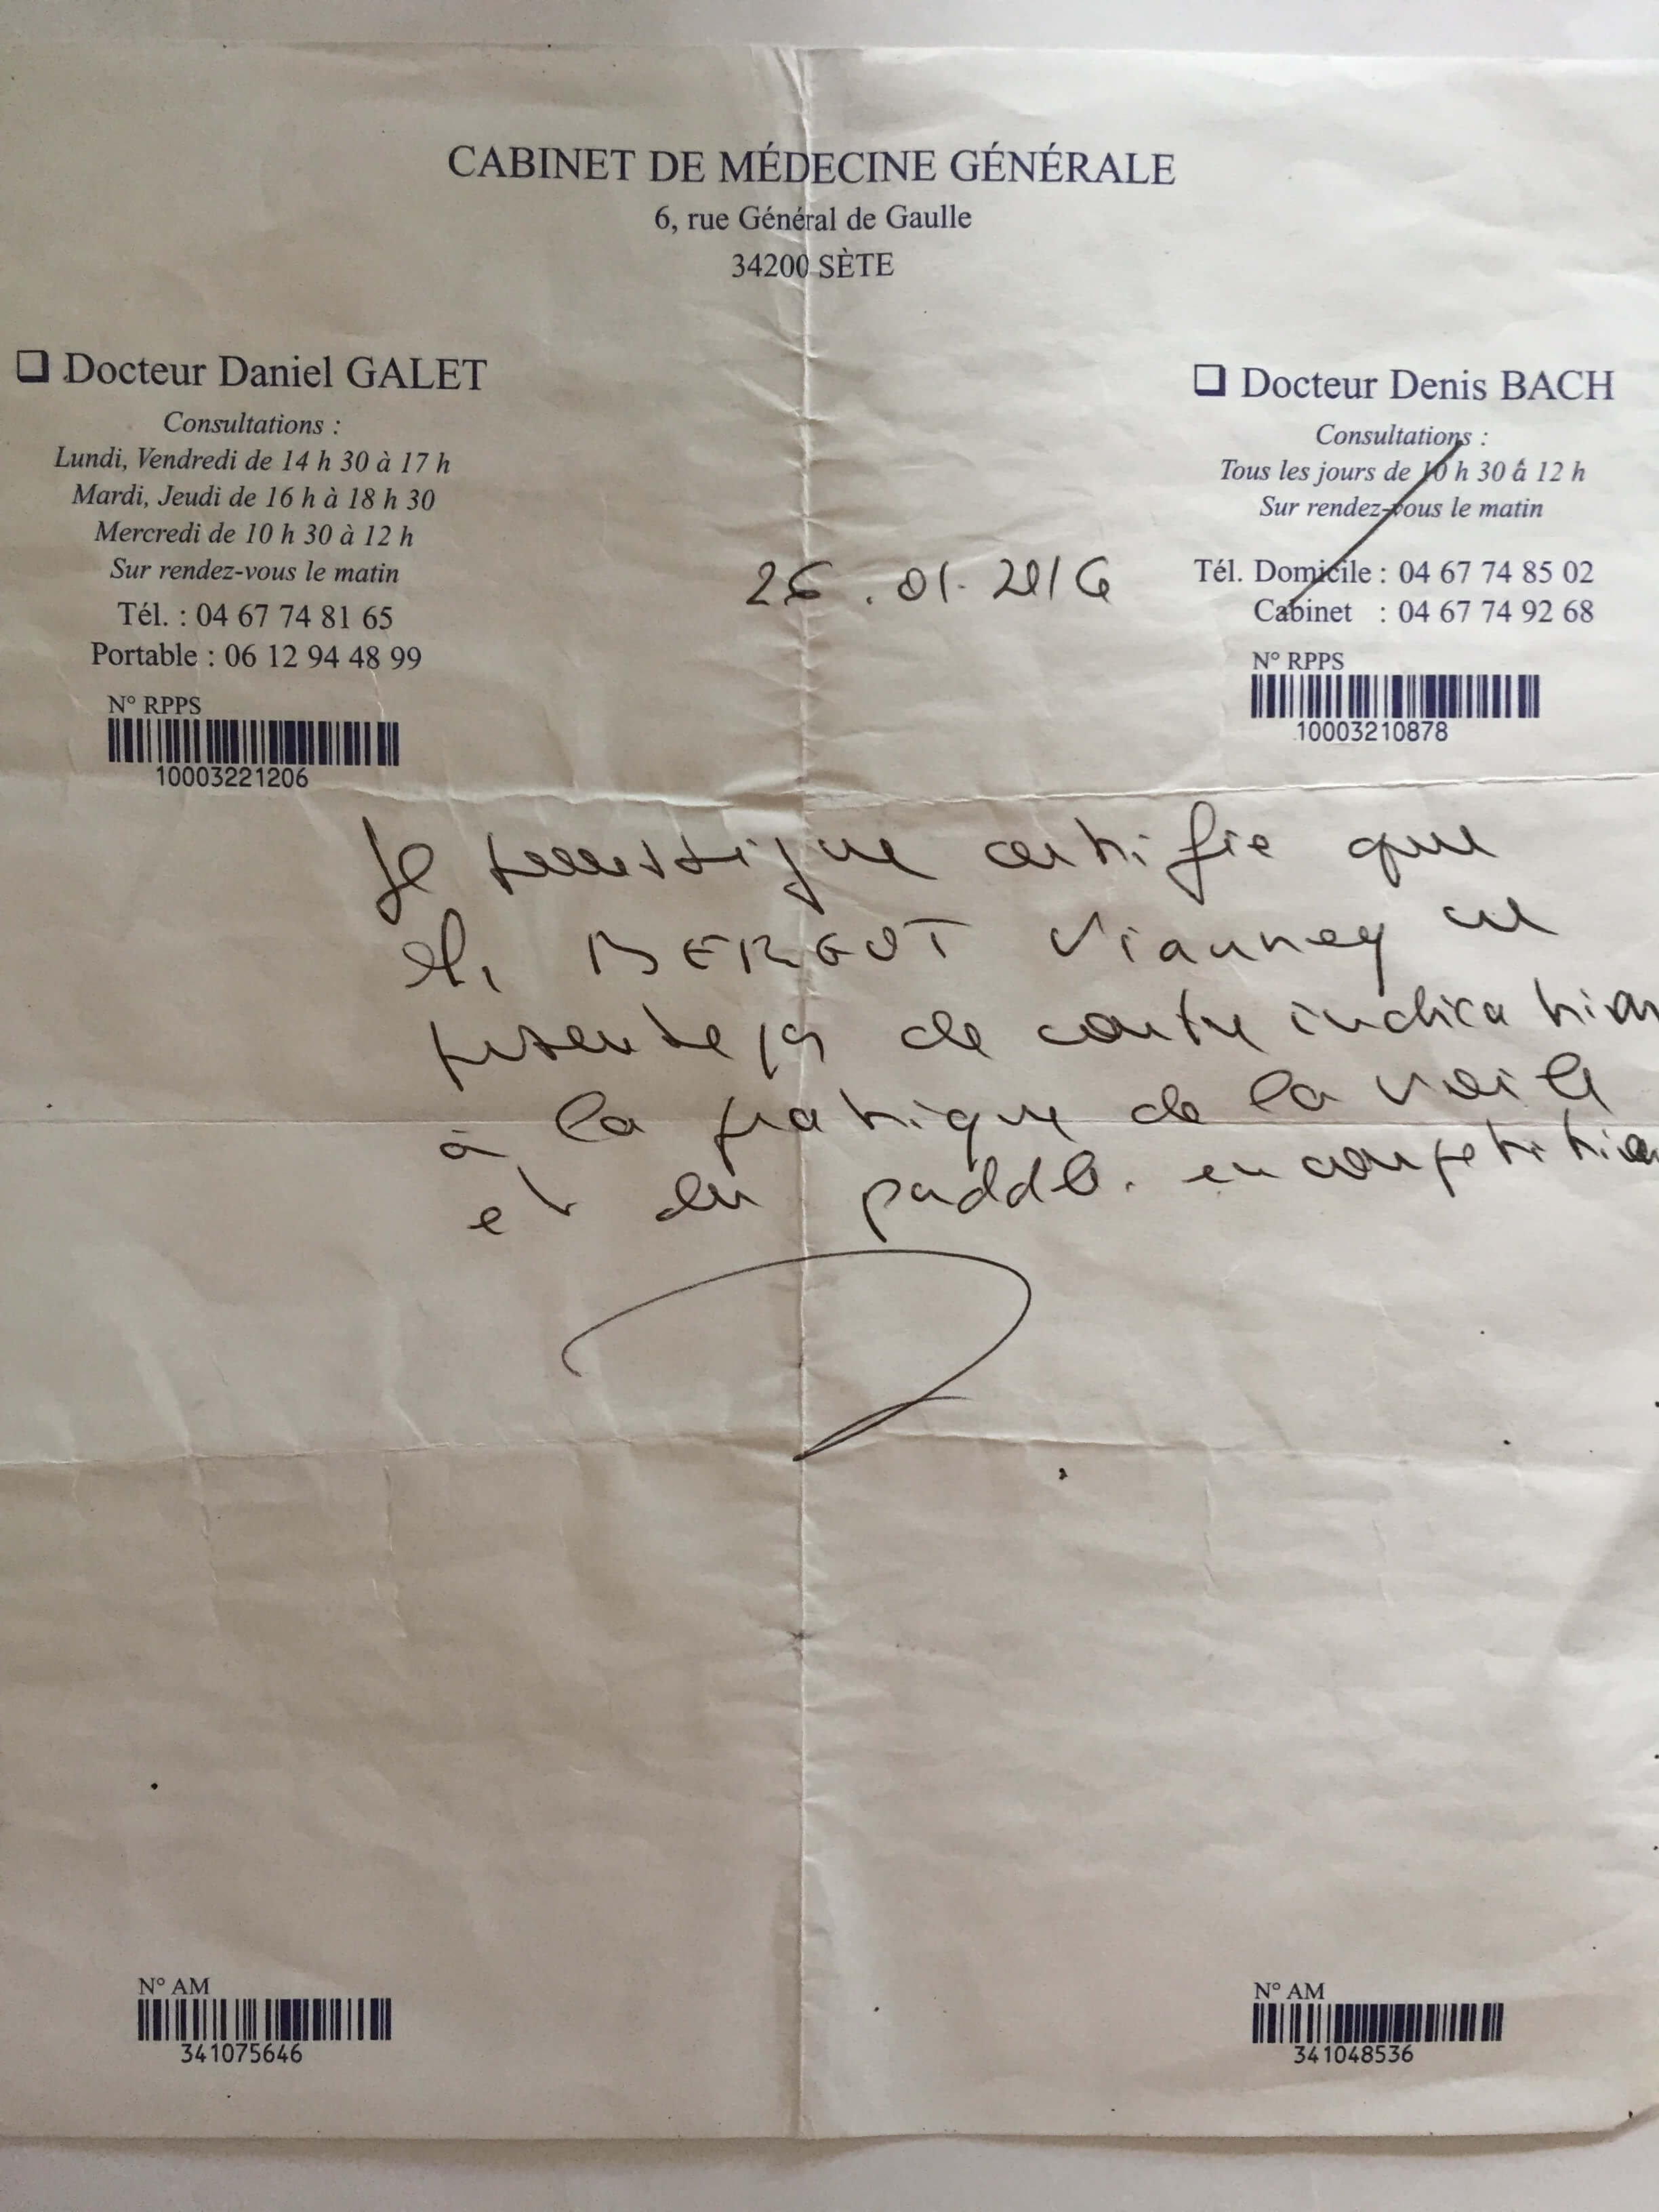 CABINET DE MÉDECINE GÉNÉRALE
6, rue Général de Gaulle
34200 SÈTE
❑ Docteur Daniel GALET
Consultations :
Lundi, Vendredi de 14 h 30 à 17 h
Mardi, Jeudi de 16 h à 18 h 30
Mercredi de 10 h 30 à 12 h
Sur rendez-vous le matin
Tél. : 04 67 74 81 65
Portable : 06 12 94 48 99
N° RPPS
10003221206
❑ Docteur Denis BACH
Consultations :
Tous les jours de 10 h 30 à 12 h
Sur rendez-vous le matin
Tél. Domicile : 04 67 74 85 02
Cabinet : 04 67 74 92 68
N° RPPS
10003210878
26.01.2016
Je soussigne certifie que
M. BERGOT Vianney ne
presente pas de contre indication
à la pratique de la voile
et du paddle. en competition
N° AM
341075646
N° AM
341048536